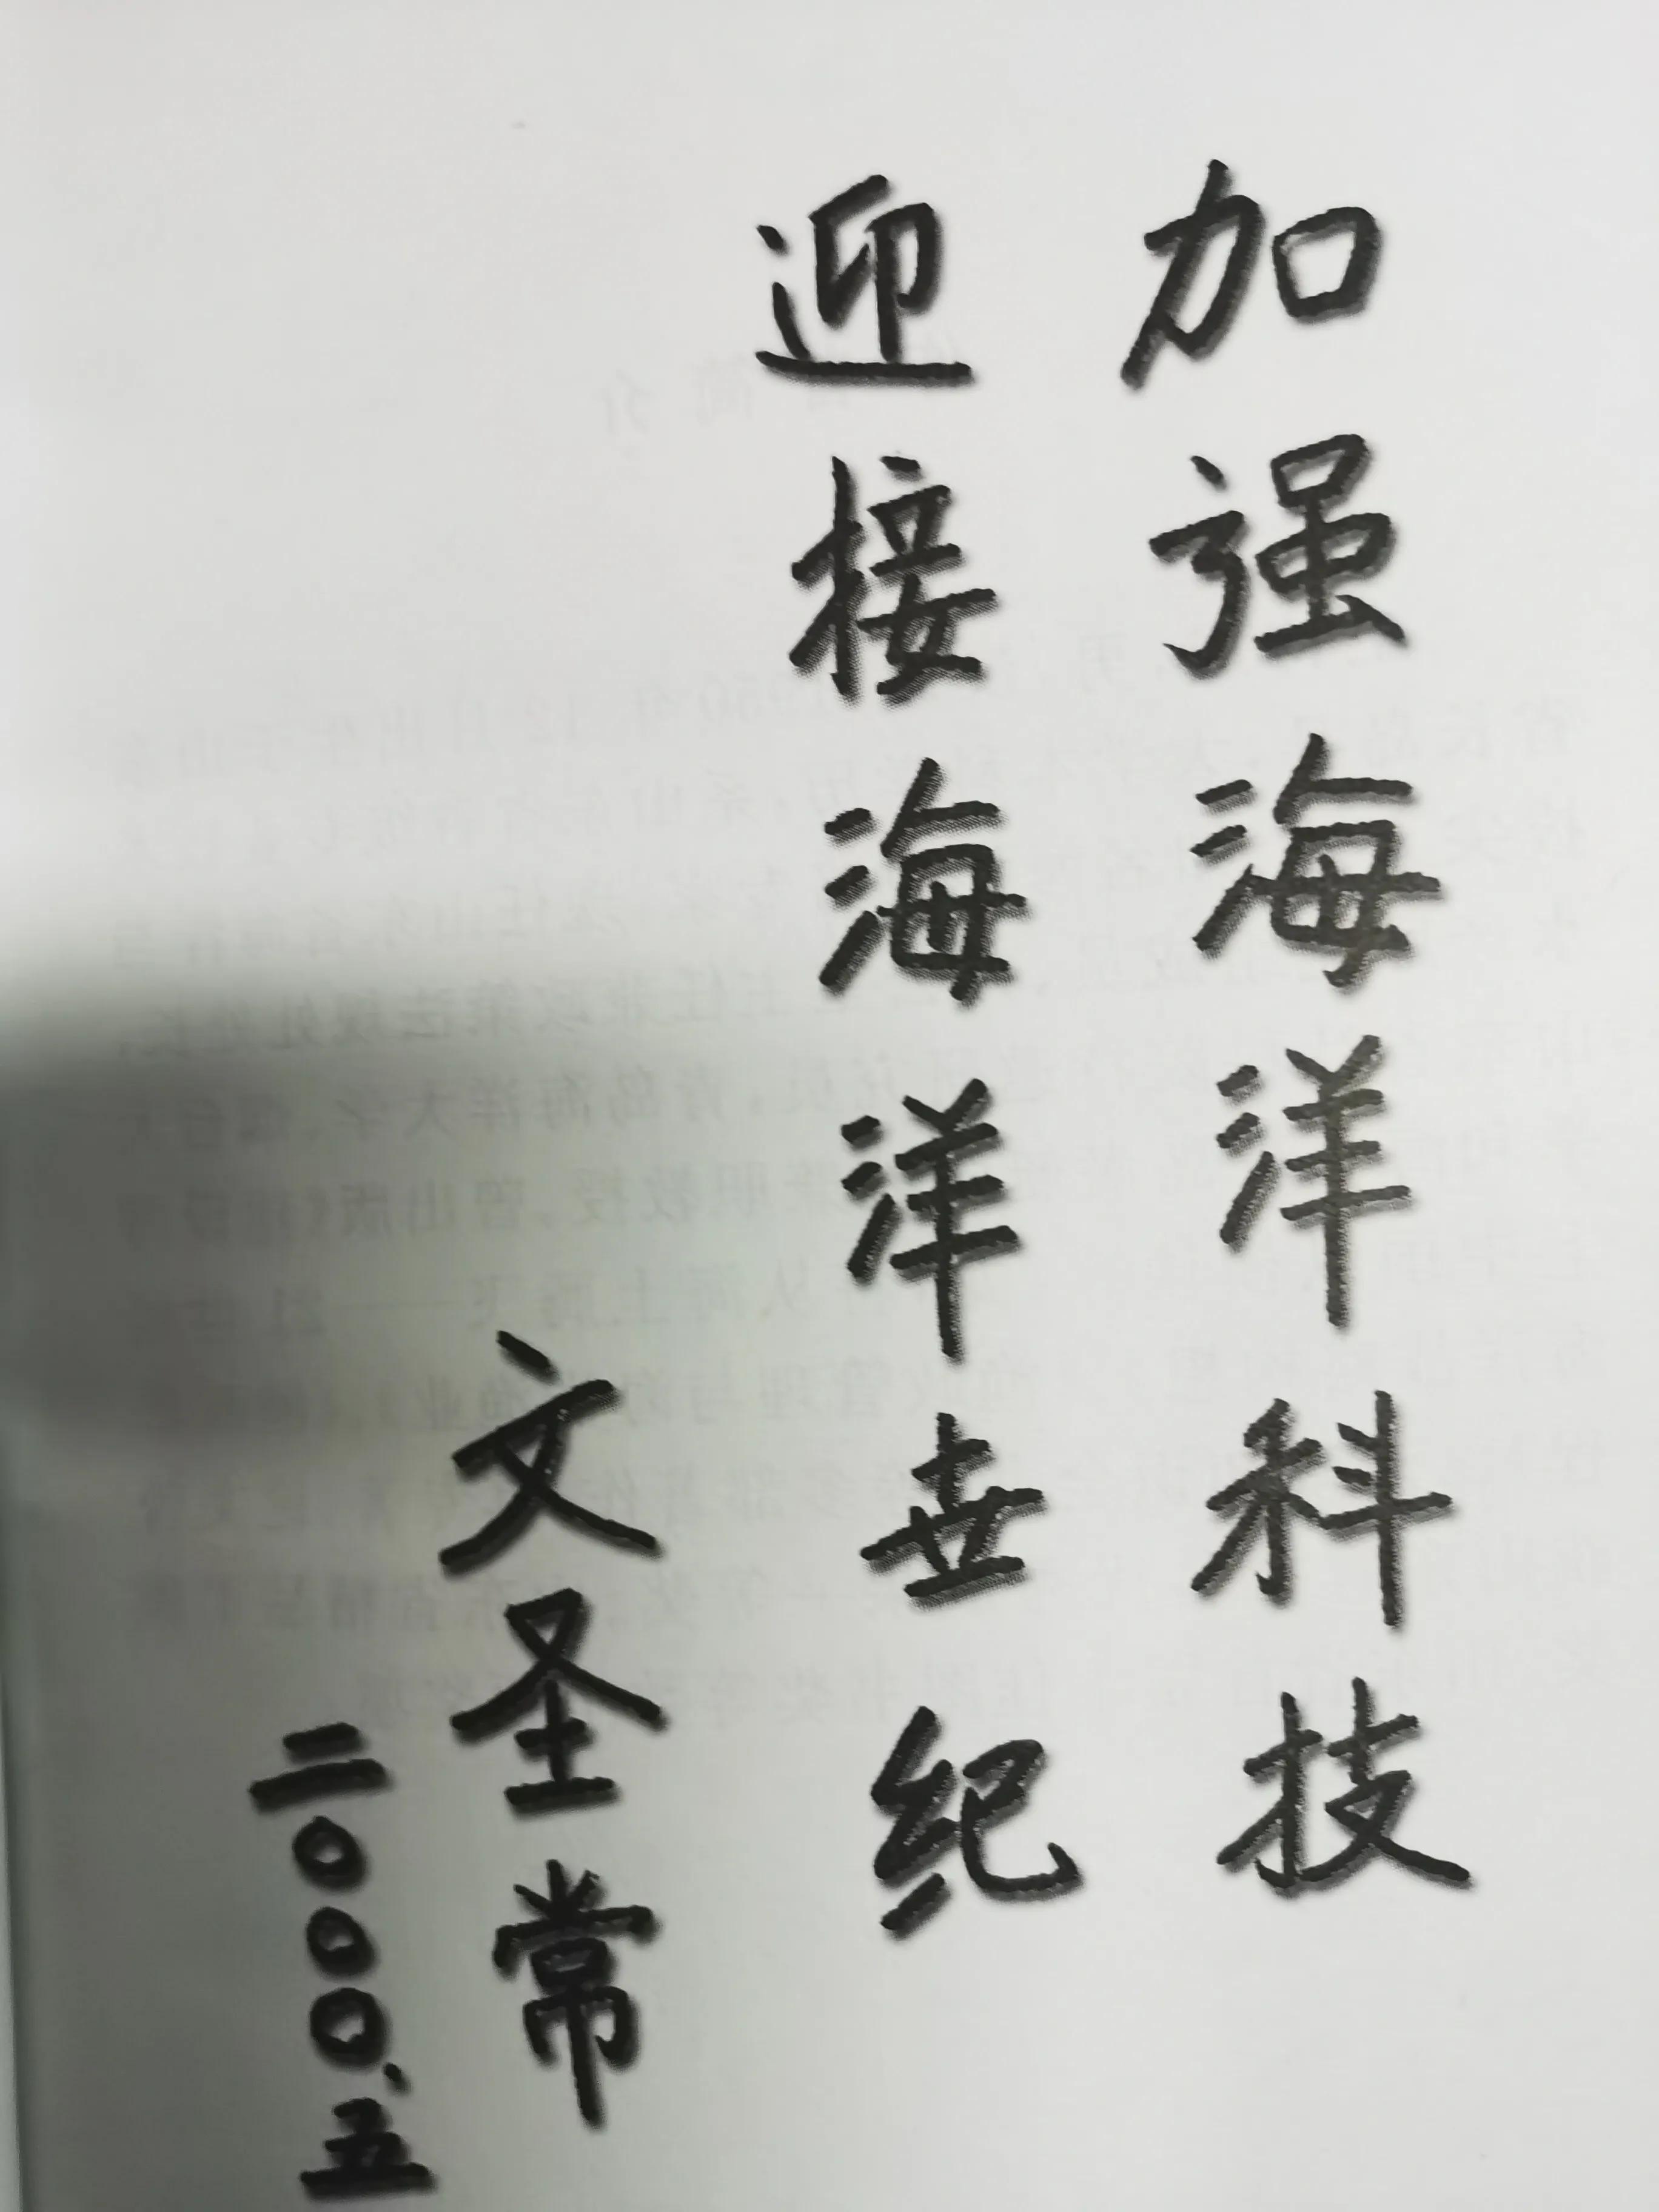 加强海洋科技
迎接海洋世纪
文圣常
二〇〇〇.五